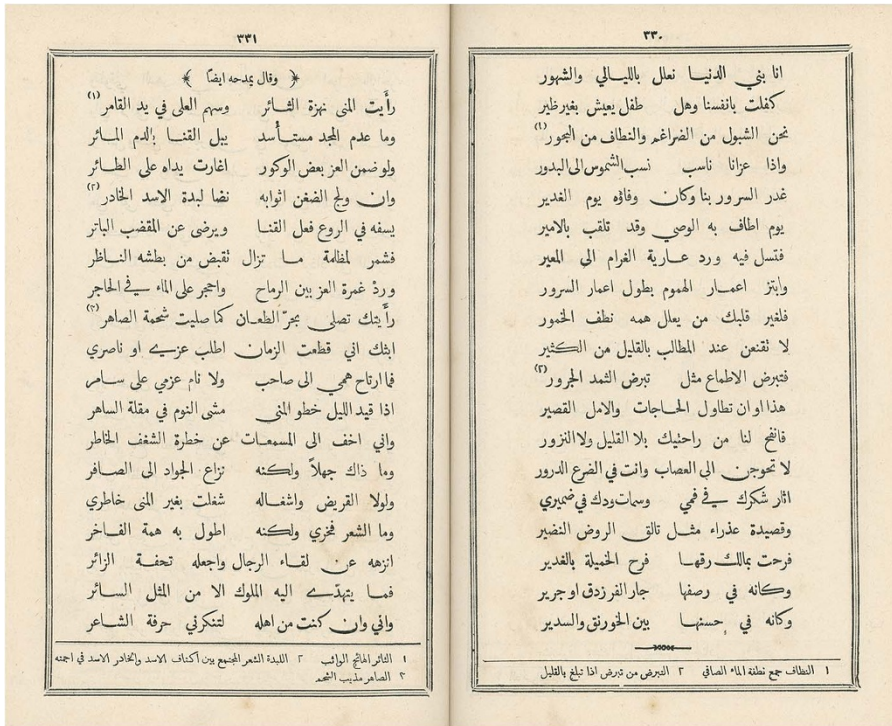 ٣٣٠
انا بني الدنيا نعلل بالليالي والشهور
كفلت بانفسنا وهل طفل يعيش بغير ظير
نحن الشبول من الضراغم والنطاف من البحور (١)
واذا عزانا ناسب نسب الشموس الى البدور
غدر السرور بنا وكان وفاؤه يوم الغدير
يوم اطاف به الوصي وقد تلقب بالامير
فتسل فيه ورد عارية الغرام الى المعير
وابتز اعمار الهموم بطول اعمار السرور
فلغير قلبك من يعلل همه نطف الخمور
لا تقنعن عند المطالب بالقليل من الكثير
فتبرض الاطماع مثل تبرض الثمد الجرور (٢)
هذا اوان تطاول الحاجات والامل القصير
فانفح لنا من راحتيك بلا القليل ولا النزور
لا تحوجن الى العصاب وانت في الضرع الدرور
اثار شكرك في فمي وسمات ودك في ضميري
وقصيدة عذراء مثل تالق الروض النضير
فرحت بمالك رقها فرح الخميلة بالغدير
وكانه في رصفها جار الفرزدق او جرير
وكانه في حسنها بين الخورنق والسدير
١ النطاف جمع نطفة الماء الصافي ٢ التبرض من تبرض اذا تبلغ بالقليل
٣٣١
﴿ وقال يمدحه ايضاً ﴾
رأيت المنى نهزة الثائر وسهم العلى في يد القامر (١)
وما عدم المجد مستأسد يبل القنا بالدم المائر
ولو ضمن العز بعض الوكور اغارت يداه على الطائر
وان ولج الضغن اثوابه نضا لبدة الاسد الخادر (٢)
يسفه في الروع فعل القنا ويرضى عن المقضب الباتر
فشمر لمظلمة ما تزال تقبض من بطشه الناظر
ورد غمرة العز بين الرماح واحجر على الماء في الحاجر
رأيتك تصلى بجرّ الطعان كما صليت شحمة الصاهر (٣)
ابثك اني قطعت الزمان اطلب عزي او ناصري
فما ارتاح همي الى صاحب ولا نام عزمي على سامر
اذا قيد الليل خطو المنى مشى النوم في مقلة الساهر
واني اخف الى المسمعات عن خطرة الشغف الخاطر
وما ذاك جهلاً ولكنه نزاع الجواد الى الصافر
ولولا القريض واشغاله شغلت بغير المنى خاطري
وما الشعر فخري ولكنه اطول به همة الفاخر
انزهه عن لقاء الرجال واجعله تحفة الزائر
فما يتهدّى اليه الملوك الا من المثل السائر
واني وان كنت من اهله لتنكرني حرفة الشاعر
١ الثائر الهائج الواثب ٢ اللبدة الشعر المجتمع بين اكتاف الاسد والخادر الاسد في اجمته
٣ الصاهر مذيب الشحم